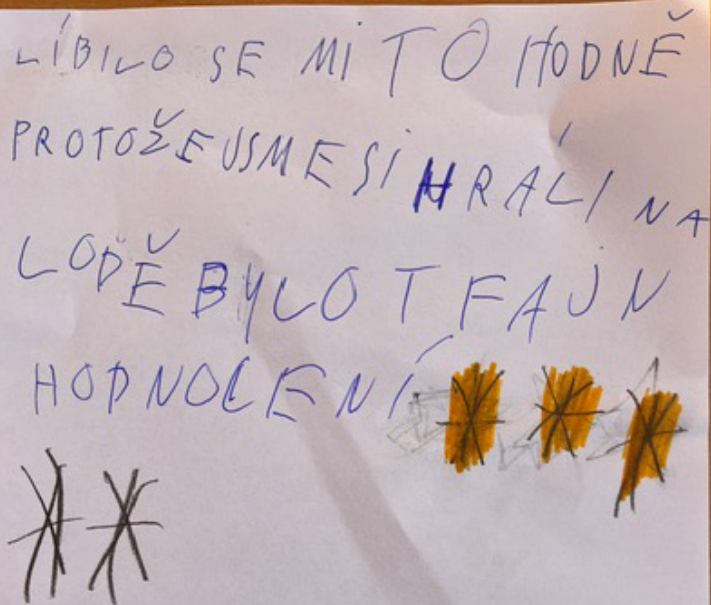 LÍBILO SE MI TO HODNĚ
PROTOŽE USME SI HRÁLI NA
LODĚ BYLO T FAJN
HODNOCENÍ